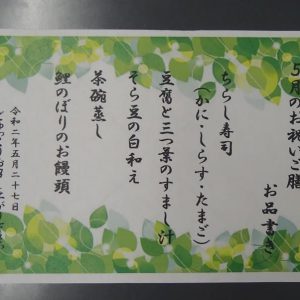 5月のお祝いご膳
お品書き
ちらし寿司
(かに・しらす・たまご)
豆腐と三つ葉のすまし汁
そら豆の白和え
茶碗蒸し
鯉のぼりのお饅頭
令和二年五月二十七日